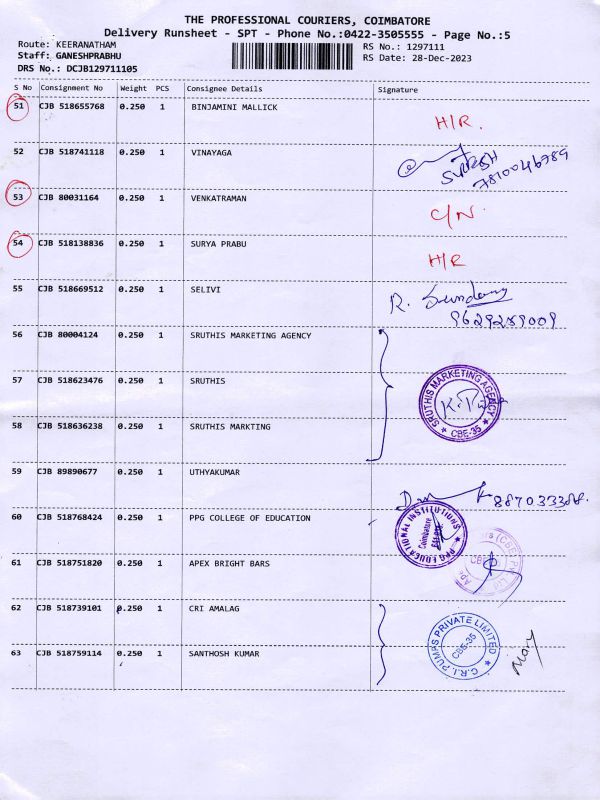 THE PROFESSIONAL COURIERS, COIMBATORE
Delivery Runsheet - SPT - Phone No.:0422-3505555 - Page No.:5
Route: KEERANATHAM
RS No.: 1297111
Staff: GANESHPRABHU
RS Date: 28-Dec-2023
DRS No.: DCJB129711105
S No Consignment No Weight PCS Consignee Details Signature
51 CJB 518655768 0.250 1 BINJAMINI MALLICK
H/R.
52 CJB 518741118 0.250 1 VINAYAGA
SURESH
7810046789
53 CJB 80031164 0.250 1 VENKATRAMAN
C/N.
54 CJB 518138836 0.250 1 SURYA PRABU
H/R
55 CJB 518669512 0.250 1 SELIVI
R.
9629259009
56 CJB 80004124 0.250 1 SRUTHIS MARKETING AGENCY
57 CJB 518623476 0.250 1 SRUTHIS
SRUTHIS MARKETING AGENCY
CBE-35
58 CJB 518636238 0.250 1 SRUTHIS MARKTING
59 CJB 89890677 0.250 1 UTHYAKUMAR
60 CJB 518768424 0.250 1 PPG COLLEGE OF EDUCATION
PPG EDUCATIONAL INSTITUTIONS
Coimbatore
61 CJB 518751820 0.250 1 APEX BRIGHT BARS
62 CJB 518739101 0.250 1 CRI AMALAG
C.R.I. PUMPS PRIVATE LIMITED
CBE-35
Mary
63 CJB 518759114 0.250 1 SANTHOSH KUMAR